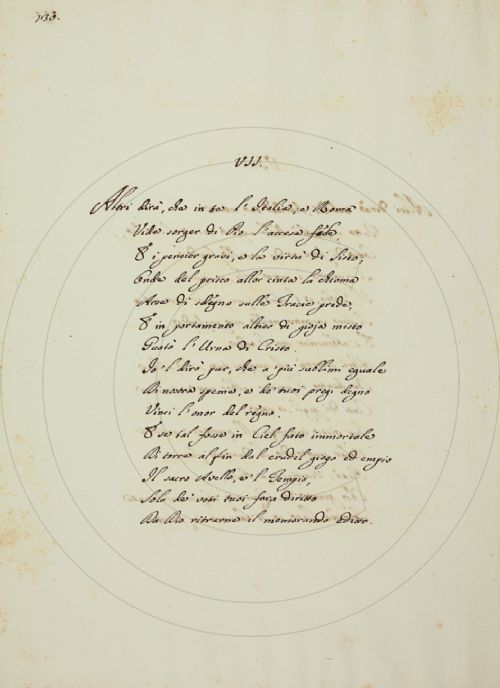 138.
VII.
Altri dirà, che in te l'Italia, e Roma
Vide sorger di Pio l'accesa fede
E i pensier gravi, e la virtù di Sisto;
Onde del prisco allor cinta la chioma
Arse di sdegno sulle Tracie prede,
E in portamento altero di gioja misto
Guatò l'Urna di Cristo.
Io 'l dirò pur, che a più sublimi eguale
Di nostra speme, e de' tuoi pregi degno
Vinci l'onor del regno.
E se tal fosse in Ciel fato immortale
Di torre alfin dal crudel giogo ed empio
Il sacro Avello, e 'l Tempio,
Solo de' voti tuoi fora diritto
Da Dio ritrarne il memorando editto.